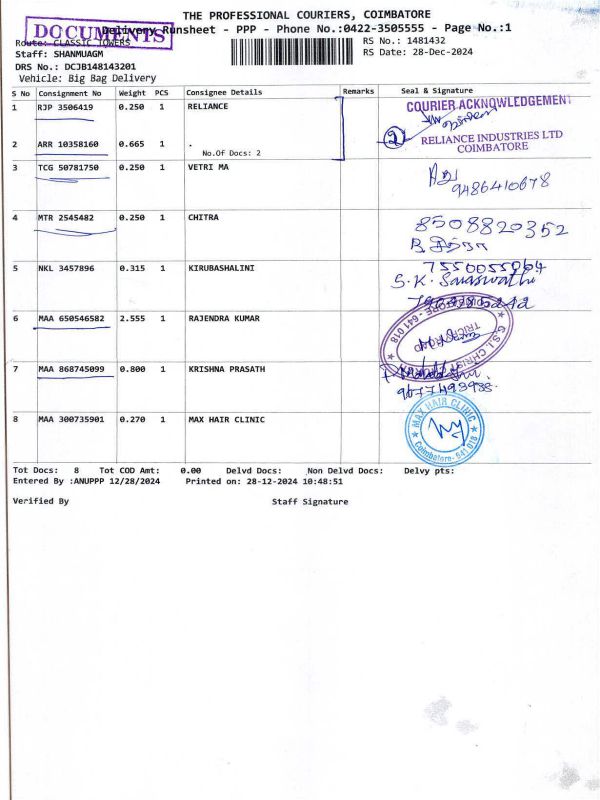 THE PROFESSIONAL COURIERS, COIMBATORE
DOCUMENTS
Delivery Runsheet - PPP - Phone No.:0422-3505555 - Page No.:1
Route: CLASSIC TOWERS
RS No.: 1481432
Staff: SHANMUAGM
RS Date: 28-Dec-2024
DRS No.: DCJB148143201
Vehicle: Big Bag Delivery
S No Consignment No Weight PCS Consignee Details Remarks Seal & Signature
1 RJP 3506419 0.250 1 RELIANCE
COURIER ACKNOWLEDGEMENT
2 ARR 10358160 0.665 1 .
No.Of Docs: 2
2
RELIANCE INDUSTRIES LTD
COIMBATORE
3 TCG 50781750 0.250 1 VETRI MA
9486410678
4 MTR 2545482 0.250 1 CHITRA
8508820352
5 NKL 3457896 0.315 1 KIRUBASHALINI
S.K. Saraswathi
6 MAA 650546582 2.555 1 RAJENDRA KUMAR
7 MAA 868745099 0.800 1 KRISHNA PRASATH
8 MAA 300735901 0.270 1 MAX HAIR CLINIC
MAX HAIR CLINIC
Coimbatore- 641 018
Tot Docs: 8 Tot COD Amt: 0.00 Delvd Docs: Non Delvd Docs: Delvy pts:
Entered By :ANUPPP 12/28/2024 Printed on: 28-12-2024 10:48:51
Verified By Staff Signature